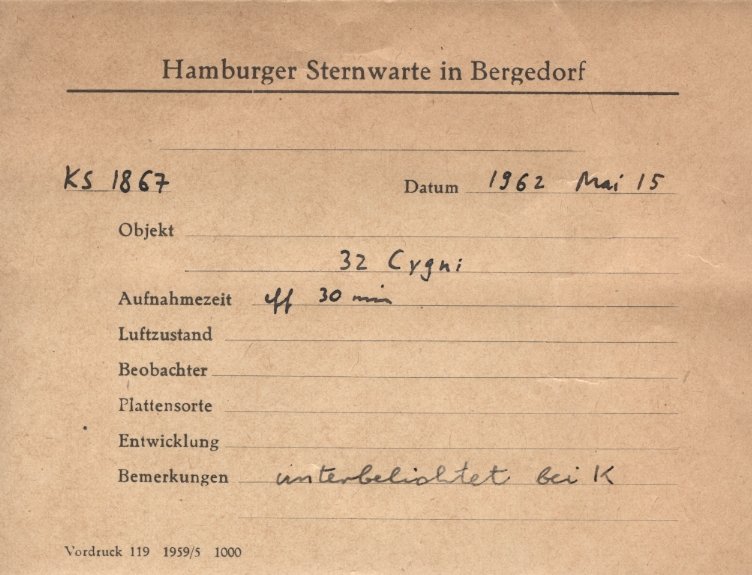 Hamburger Sternwarte in Bergedorf
KS 1867 Datum 1962 Mai 15
Objekt
32 Cygni
Aufnahmezeit eff 30 min
Luftzustand
Beobachter
Plattensorte
Entwicklung
Bemerkungen unterbelichtet bei K
Vordruck 119 1959/5 1000